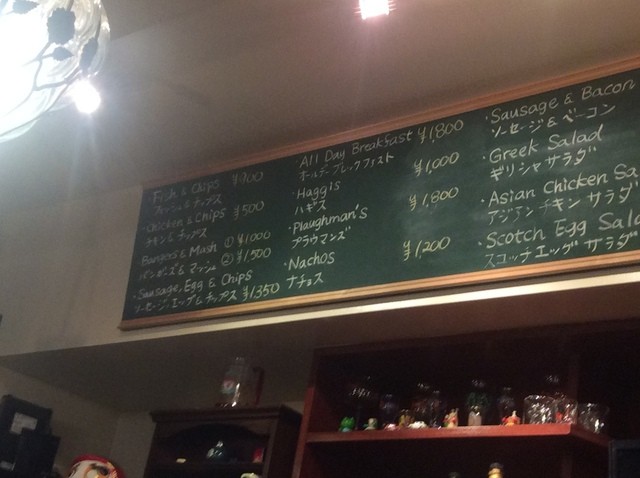 Fish & Chips ¥900
フィッシュ&チップス
・Chicken & Chips ¥500
チキン&チップス
Bangers & Mash ① ¥1000
バンガーズ&マッシュ ② ¥1,500
・Sausage, Egg & Chips
ソーセージ、エッグ&チップス ¥1,350
All Day Breakfast ¥1,800
オールデーブレックファスト
・Haggis ¥1,000
ハギス
・Plaughman's ¥1,800
プラウマンズ
・Nachos ¥1,200
ナチョス
・Sausage & Bacon
ソーセージ&ベーコン
・Greek Salad
ギリシャサラダ
・Asian Chicken Sa
アジアンチキンサラダ
・Scotch Egg Sala
スコッチエッグサラダ